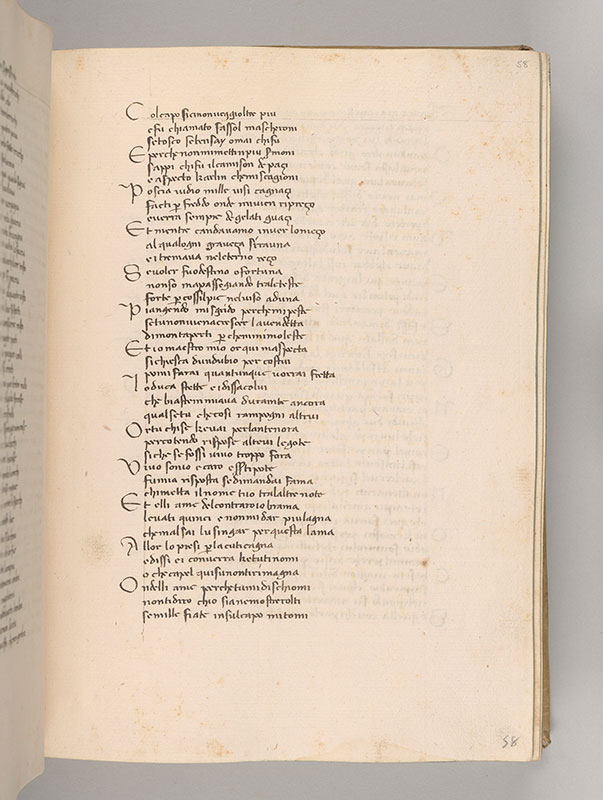 58
Col capo si cinonueggioltre piu
efu chiamato sassol mascheroni
setosco setensay omai chifu
E perche nonmimettinpiu sermoni
sappi chifu ilcamison de paçi
e aspecto karlin chemiscagioni
Poscia vidio mille visi cagnaçi
facti per freddo onde mivien ripreço
everra sempre de gelati guaçi
Et mentre candavamo inver lomeço
al qualogni graveça seravna
e i tremava neleterno reço
Se voler fuodestino ofortuna
nonso mapassegiando tralcteste
forte percossilpie nelviso aduna
Piangendo misgrido perchemipeste
setunonvienacrescer lavendetta
dimontaperti perchemmimoleste
Et io maestro mio or qui maspecta
sichiesca dundubio per costui
ipomifarai quantunque vorrai fretta
Ioduca stette e idissacolui
che biastemmiava duramte ancora
qualsetu checosi rampogni altrui
Ortuchise kevai perlantenora
percotendo rispose altrui legote
siche se fossi vivo troppo fora
Vivo sonio e caro esser tipote
fumia risposta sedimandai fama
chimetta ilnome tuo tralaltre note
Et elli ame delcontraroio brama
levati quinci e nonmidar piulagna
chemalsai lusingar perquesta lama
Allor lopresi per lacuticagna
edissi ei converra ketutinomi
o checapel quisunontirimagna
Ondelli ame perchetumidischiomi
nontidiro chio sianemosterolti
semille fiate insulcapo mitomi
58